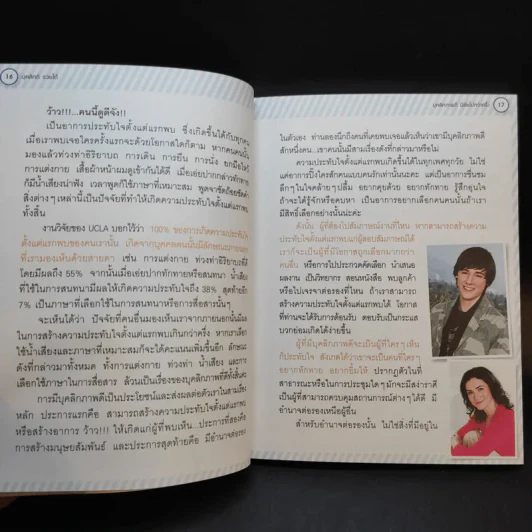 16 บุคลิกดี รวยได้
ว้าว!!!...คนนี้ดูดีจัง!!
เป็นอาการประทับใจตั้งแต่แรกพบ ซึ่งเกิดขึ้นได้กับทุกคน
เมื่อเราพบเจอใครครั้งแรกจะด้วยโอกาสใดก็ตาม หากคนคนนั้น
มองแล้วท่วงท่าอิริยาบถ การเดิน การยืน การนั่ง
การแต่งกาย เสื้อผ้าหน้าผมดูเข้ากันได้ดี เมื่อเอ่ยปากกล่าวทักทาย
ก็มีน้ำเสียงน่าฟัง เวลาพูดก็ใช้ภาษาที่เหมาะสม
สิ่งต่างๆ เหล่านี้เป็นปัจจัยที่ทำให้เกิดความประทับใจตั้งแต่แรกพบ
ทั้งสิ้น
งานวิจัยของ UCLA บอกไว้ว่า 100% ของการเกิดความประทับใจ
ตั้งแต่แรกพบของคนเรานั้น เกิดจากบุคคลคนนั้นมีลักษณะภายนอก
ที่เรามองเห็นด้วยสายตา เช่น การแต่งกาย ท่วงท่าอิริยาบถที่ดี
โดยมีผลถึง 55% จากนั้นเมื่อเอ่ยปากทักทายหรือสนทนา น้ำเสียง
ที่ใช้ในการสนทนาจะมีผลให้เกิดความประทับใจถึง 38% สุดท้ายอีก
7% เป็นภาษาที่เลือกใช้ในการสนทนาหรือการสื่อสารนั้นๆ
จะเห็นได้ว่า ปัจจัยที่คนอื่นมองเห็นเราจากภายนอกนั้นมีผล
ในการสร้างความประทับใจตั้งแต่แรกพบเกินกว่าครึ่ง หากเราเลือก
ใช้น้ำเสียงและภาษาที่เหมาะสมก็จะได้คะแนนเพิ่มขึ้นอีก ลักษณะ
ดังที่กล่าวมาทั้งหมด ทั้งการแต่งกาย ท่วงท่า น้ำเสียง และการ
เลือกใช้ภาษาในการสื่อสาร ล้วนเป็นเรื่องของบุคลิกภาพที่ดีทั้งสิ้นค่ะ
การมีบุคลิกภาพดีเป็นประโยชน์และส่งผลต่อตัวเราในสามเรื่อง
หลัก ประการแรกคือ สามารถสร้างความประทับใจตั้งแต่แรกพบ
หรือสร้างอาการ ว้าว!!! ให้เกิดแก่ผู้ที่พบเห็น ประการที่สองคือ
การสร้างมนุษยสัมพันธ์ และประการสุดท้ายคือ มีอำนาจต่อรอง
17
ในตัวเอง ท่านลองนึกถึงคนที่เคยพบเจอแล้วเห็นว่าเขามีบุคลิกภาพดี
สักหนึ่งคน...เขาคนนั้นมีสามเรื่องดังที่กล่าวมาหรือไม่
ความประทับใจตั้งแต่แรกพบเกิดขึ้นได้ในทุกเพศทุกวัย ไม่ใช่
แค่อาการปิ๊งใครสักคนแบบคนรักเท่านั้นนะคะ แต่เป็นอาการชื่นชม
ลึกๆ ในใจคล้ายๆ ปลื้ม อยากคุยด้วย อยากทักทาย รู้สึกอุ่นใจ
ถ้าจะได้รู้จักหรือคบหา เป็นอาการอยากเลือกคนคนนั้นถ้าเรา
มีสิทธิ์เลือกอย่างนั้นค่ะ
ดังนั้น ผู้ที่ต้องไปสัมภาษณ์งานที่ไหน หากสามารถสร้างความ
ประทับใจตั้งแต่แรกพบแก่ผู้สอบสัมภาษณ์ได้
เราก็จะเป็นผู้ที่มีโอกาสถูกเลือกมากกว่า
คนอื่น หรือการไปประกวดคัดเลือก นำเสนอ
ผลงาน เป็นวิทยากร สอนหนังสือ พบลูกค้า
หรือไปเจรจาต่อรองที่ไหน ถ้าเราสามารถ
สร้างความประทับใจตั้งแต่แรกพบได้ โอกาส
ที่ท่านจะได้รับการต้อนรับ ตอบรับเป็นกระแส
บวกย่อมเกิดได้ง่ายขึ้น
ผู้ที่มีบุคลิกภาพดีจะเป็นผู้ที่ใครๆ เห็น
ก็ประทับใจ สังเกตได้ว่าเราจะเป็นคนที่ใครๆ
อยากทักทาย อยากยิ้มให้ ปรากฏตัวในที่
สาธารณะหรือในการประชุมใดๆ มักจะมีสง่าราศี
เป็นผู้ที่สามารถควบคุมสถานการณ์ต่างๆ ได้ดี มี
อำนาจต่อรองเหนือผู้อื่น
สำหรับอำนาจต่อรองนั้น ไม่ใช่สิ่งที่มีอยู่ใน